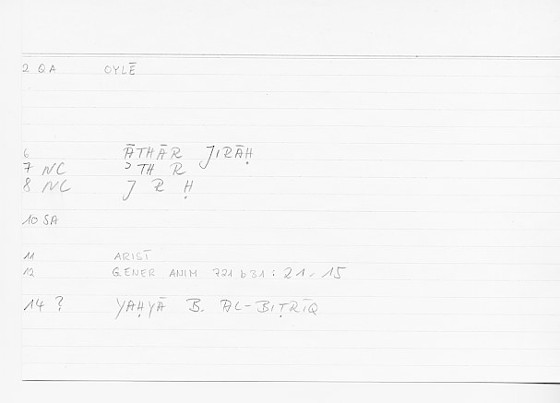 2 QA OYLĒ
6 ĀTHĀR JIRĀḤ
7 NC ʾ TH R
8 NC J R Ḥ
10 SA
11 ARIST
12 GENER ANIM 721 b 31 : 21, 15
14 ? YAḤYĀ B. AL-BIṬRĪQ